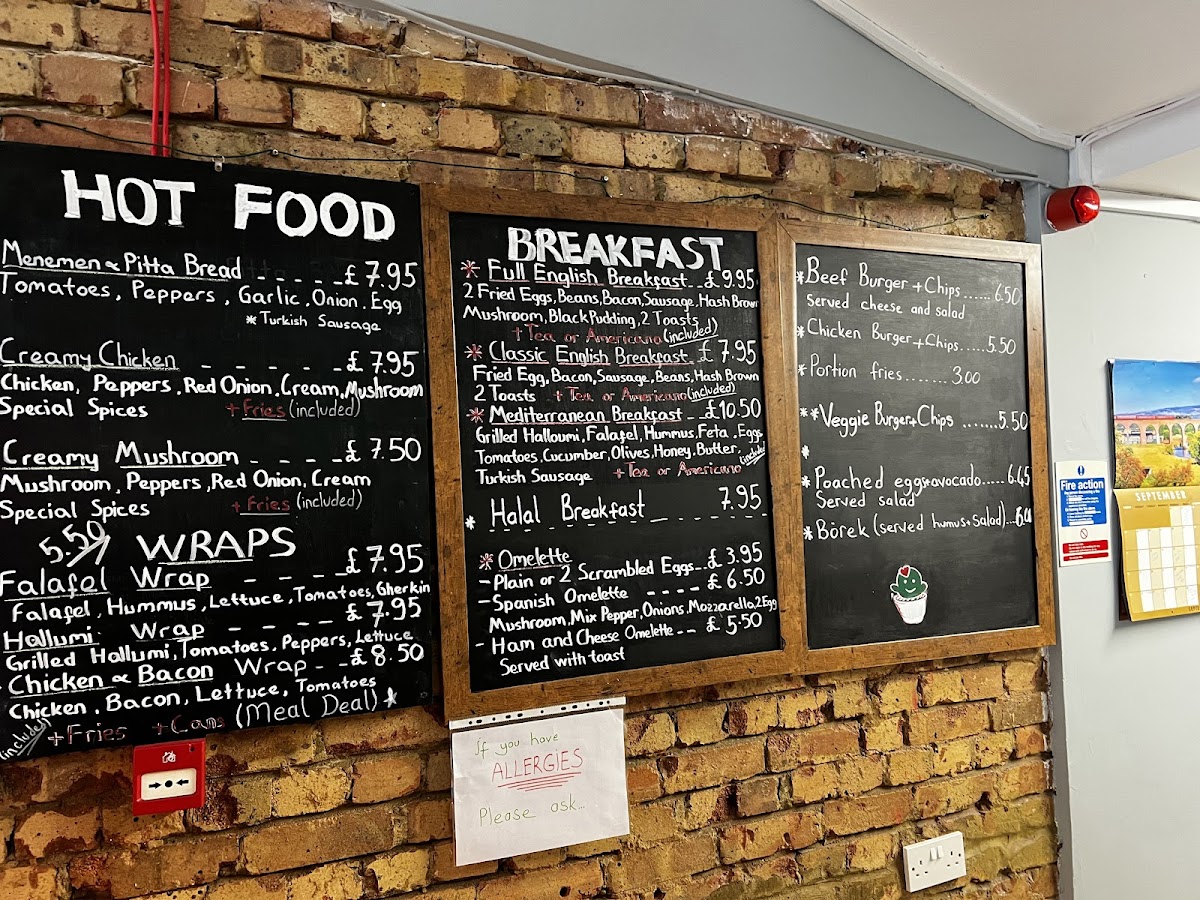 HOT FOOD
Menemen & Pitta Bread - - - - £7.95
Tomatoes, Peppers, Garlic, Onion, Egg
*Turkish Sausage
Creamy Chicken - - - - - - £7.95
Chicken, Peppers, Red Onion, Cream, Mushroom
Special Spices + Fries (included)
Creamy Mushroom - - - - £7.50
Mushroom, Peppers, Red Onion, Cream
Special Spices + Fries (included)
5.50 WRAPS
Falafel Wrap - - - - £7.95
Falafel, Hummus, Lettuce, Tomatoes, Gherkin
Hallumi Wrap - - - - £7.95
Grilled Hallumi, Tomatoes, Peppers, Lettuce
Chicken & Bacon Wrap - - £8.50
Chicken, Bacon, Lettuce, Tomatoes
(included) + Fries + Cans (Meal Deal)*
BREAKFAST
* Full English Breakfast - - £9.95
2 Fried Eggs, Beans, Bacon, Sausage, Hash Brown
Mushroom, Black Pudding, 2 Toasts
+ Tea or Americano (included)
* Classic English Breakfast - £7.95
Fried Egg, Bacon, Sausage, Beans, Hash Brown
2 Toasts + Tea or Americano (included)
* Mediterranean Breakfast - - £10.50
Grilled Halloumi, Falafel, Hummus, Feta, Eggs
Tomatoes, Cucumber, Olives, Honey, Butter,
Turkish Sausage + Tea or Americano (included)
* Halal Breakfast 7.95
* Omelette
- Plain or 2 Scrambled Eggs - - £3.95
- Spanish Omelette - - - - £6.50
Mushroom, Mix Pepper, Onions, Mozzarella, 2 Egg
- Ham and Cheese Omelette - - £5.50
Served with toast
* Beef Burger + Chips...... 6.50
Served cheese and salad
* Chicken Burger + Chips.....5.50
* Portion fries....... 3.00
**Veggie Burger + Chips .......5.50
*
* Poached eggs + avocado..... 6.45
Served salad
* Börek (served humus + Salad)...
If you have
ALLERGIES
Please ask...
Fire action
SEPTEMBER